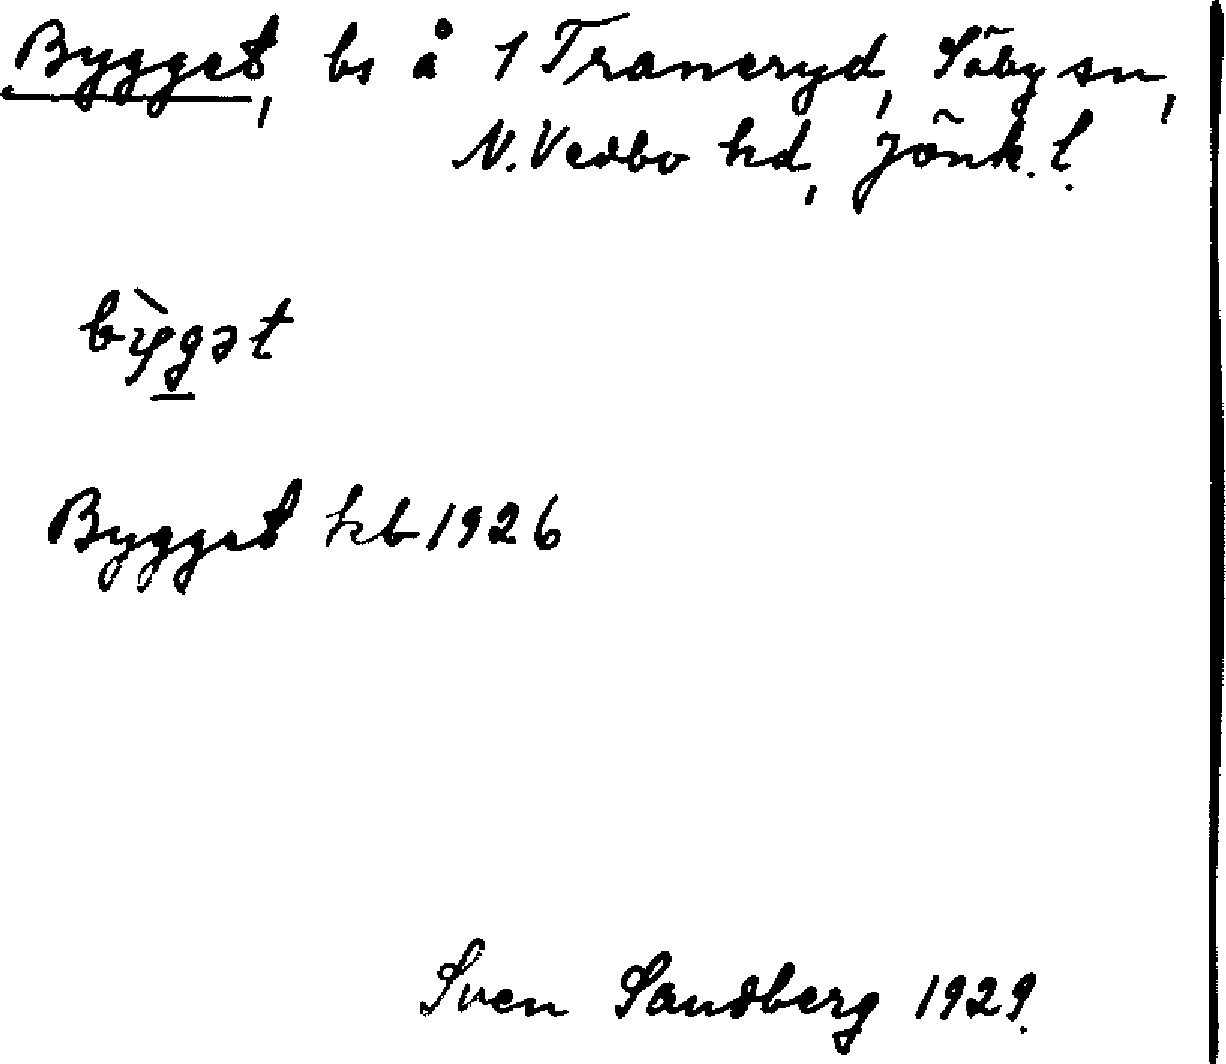 Bygget, bs å 1 Traneryd, Säby sn,
N. Vedbo hd, Jönk. l.
bỳgət
Bygget kb 1926
Sven Sandberg 1929.